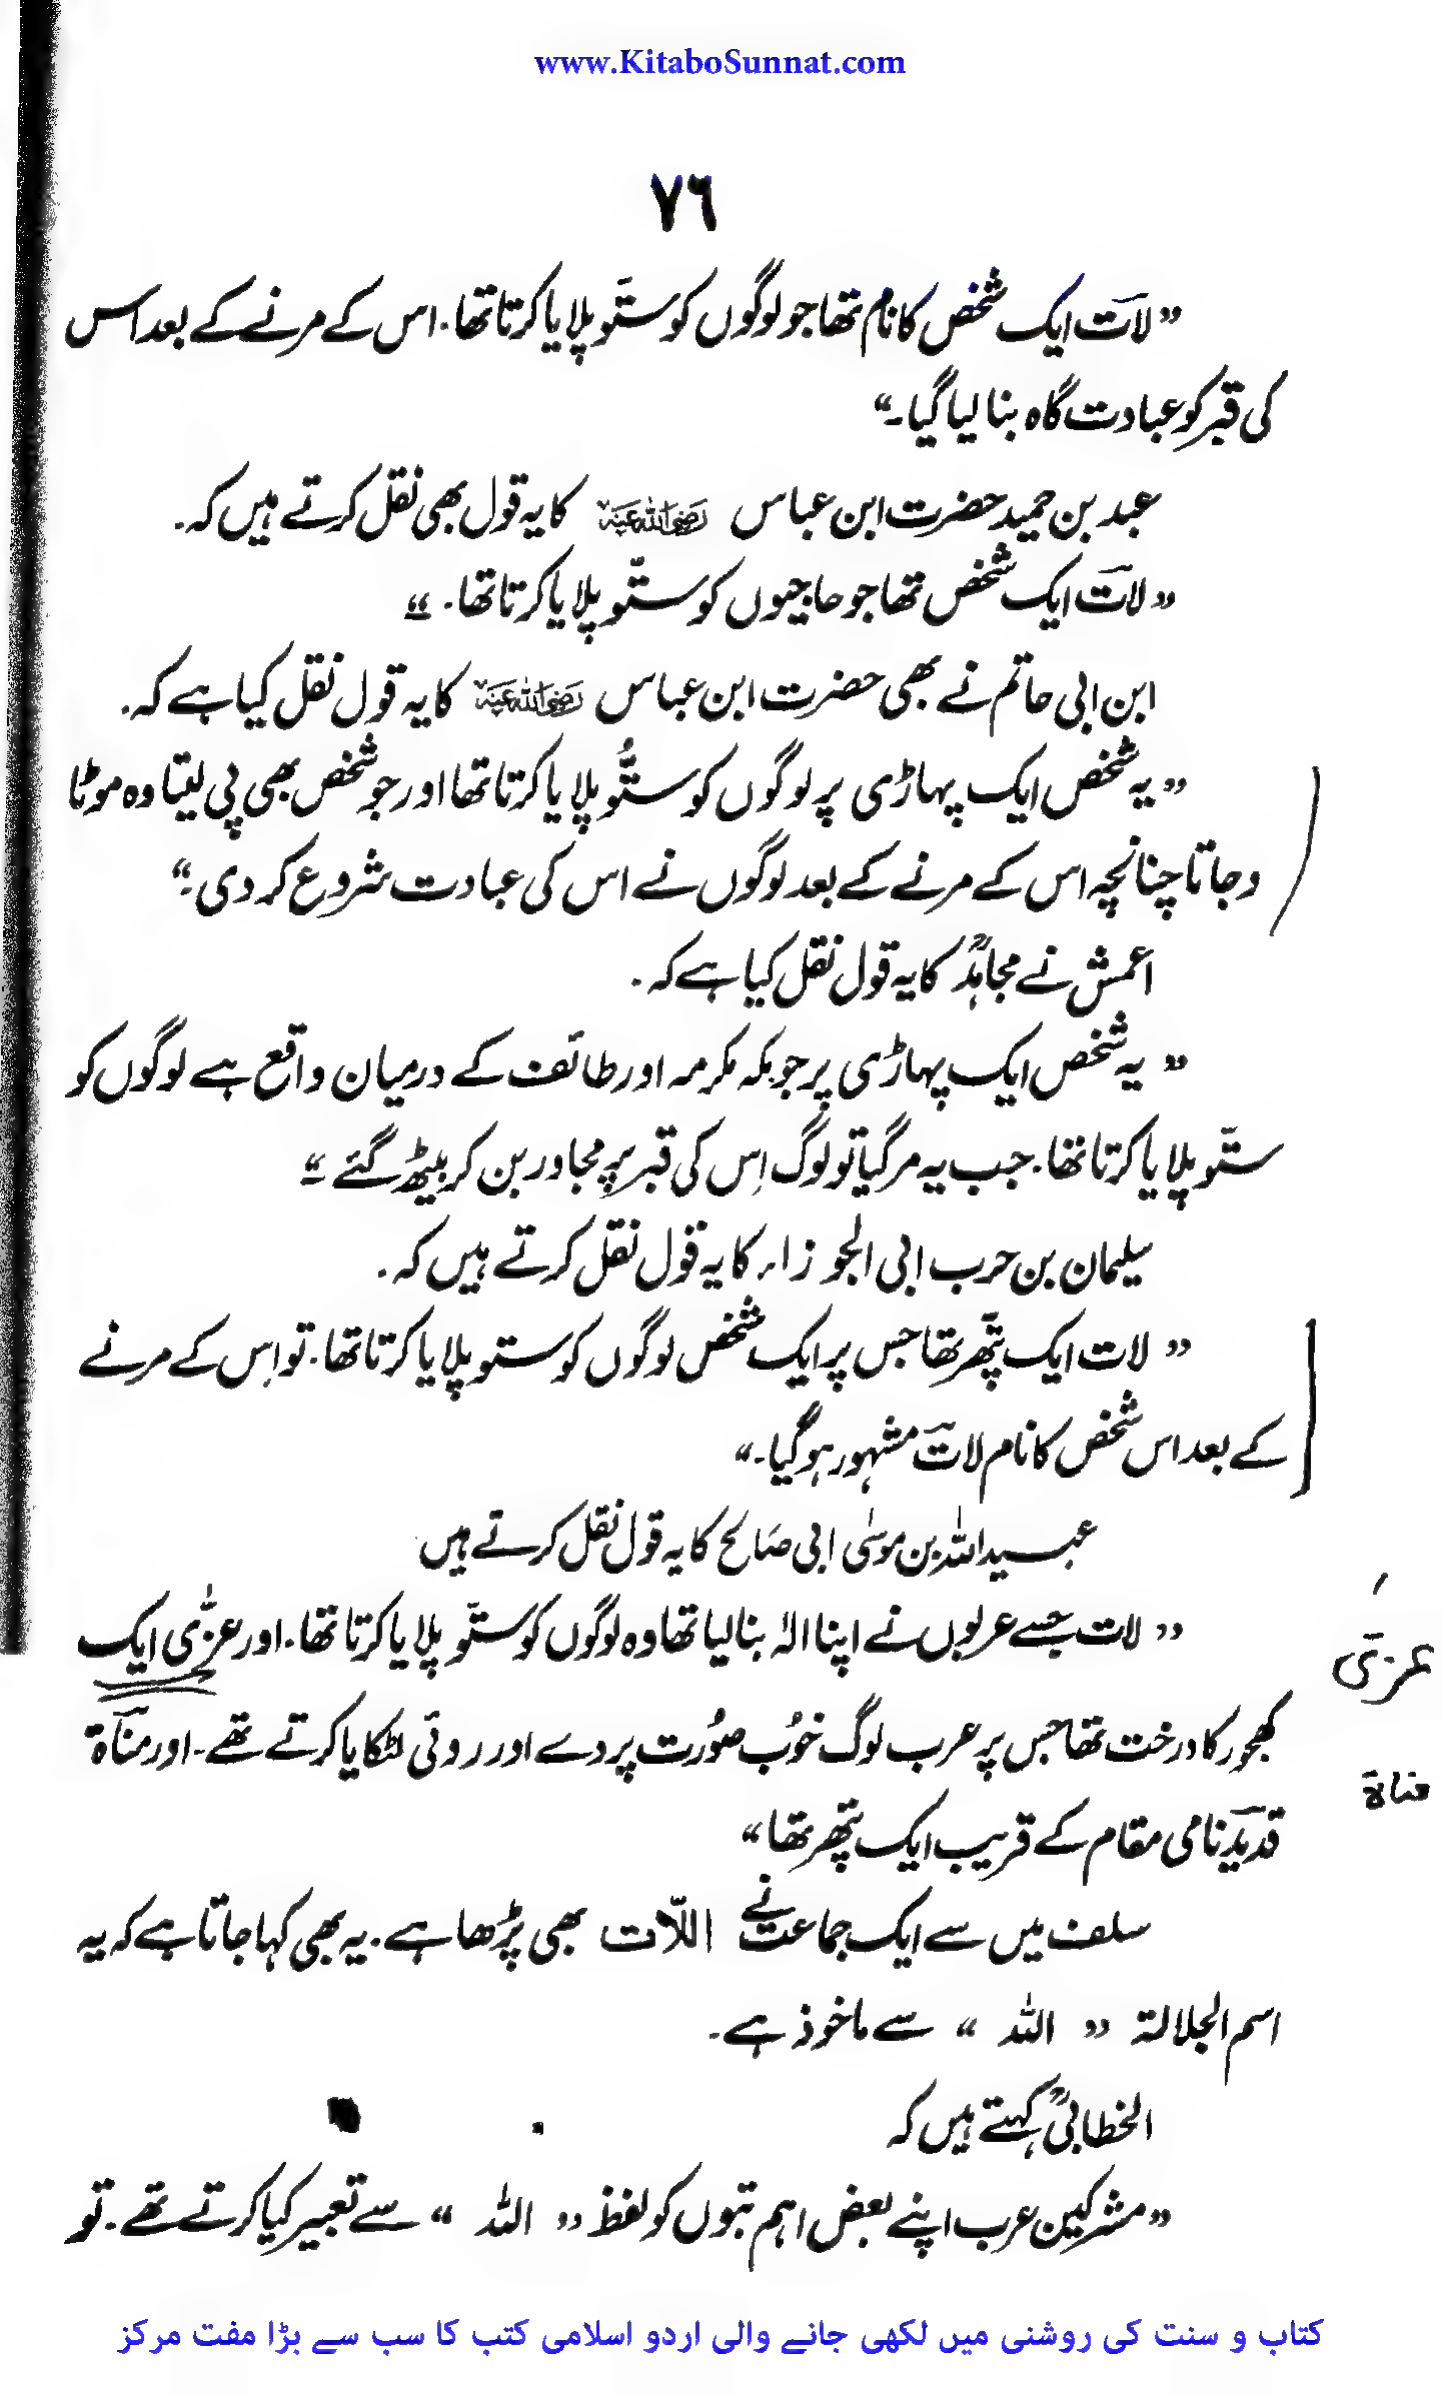 www.KitaboSunnat.com
٧٦
”لات ایک شخص کا نام تھا جو لوگوں کو ستّو پلایا کرتا تھا۔ اس کے مرنے کے بعد اس
کی قبر کو عبادت گاہ بنا لیا گیا۔“
عبد بن حمید حضرت ابن عباس رضی اللہ عنہ کا یہ قول بھی نقل کرتے ہیں کہ۔
”لات ایک شخص تھا جو حاجیوں کو ستّو پلایا کرتا تھا۔“
ابن ابی حاتم نے بھی حضرت ابن عباس رضی اللہ عنہ کا یہ قول نقل کیا ہے کہ۔
”یہ شخص ایک پہاڑی پر لوگوں کو ستّو پلایا کرتا تھا اور جو شخص بھی پی لیتا وہ موٹا
وجاتا چنانچہ اس کے مرنے کے بعد لوگوں نے اس کی عبادت شروع کر دی۔“
اعمش نے مجاہدؒ کا یہ قول نقل کیا ہے کہ۔
”یہ شخص ایک پہاڑی پر جو مکہ مکرمہ اور طائف کے درمیان واقع ہے لوگوں کو
ستّو پلایا کرتا تھا۔ جب یہ مر گیا تو لوگ اِس کی قبر پر مجاور بن کر بیٹھ گئے۔“
سلیمان بن حرب ابی الجوزاء کا یہ قول نقل کرتے ہیں کہ۔
”لات ایک پتّھر تھا جس پر ایک شخص لوگوں کو ستو پلایا کرتا تھا۔ تو اِس کے مرنے
کے بعد اس شخص کا نام لات مشہور ہو گیا۔“
عبید اللہ بن موسٰی ابی صالح کا یہ قول نقل کرتے ہیں
”لات جسے عربوں نے اپنا الٰہ بنا لیا تھا وہ لوگوں کو ستّو پلایا کرتا تھا۔ اور عزّٰی ایک
عزی
کھجور کا درخت تھا جس پر عرب لوگ خوُب صوُرت پردے اور روئی لٹکایا کرتے تھے۔ اور مناۃ
مناة
قدید نامی مقام کے قریب ایک پتھر تھا“
سلف میں سے ایک جماعت نے اللّات بھی پڑھا ہے۔ یہ بھی کہا جاتا ہے کہ یہ
اسم الجلالۃ ”اللہ“ سے ماخوذ ہے۔
الخطابیؒ کہتے ہیں کہ
”مشرکین عرب اپنے بعض اہم بتوں کو لفظ ”اللہ“ سے تعبیر کیا کرتے تھے۔ تو
کتاب و سنت کی روشنی میں لکھی جانے والی اردو اسلامی کتب کا سب سے بڑا مفت مرکز